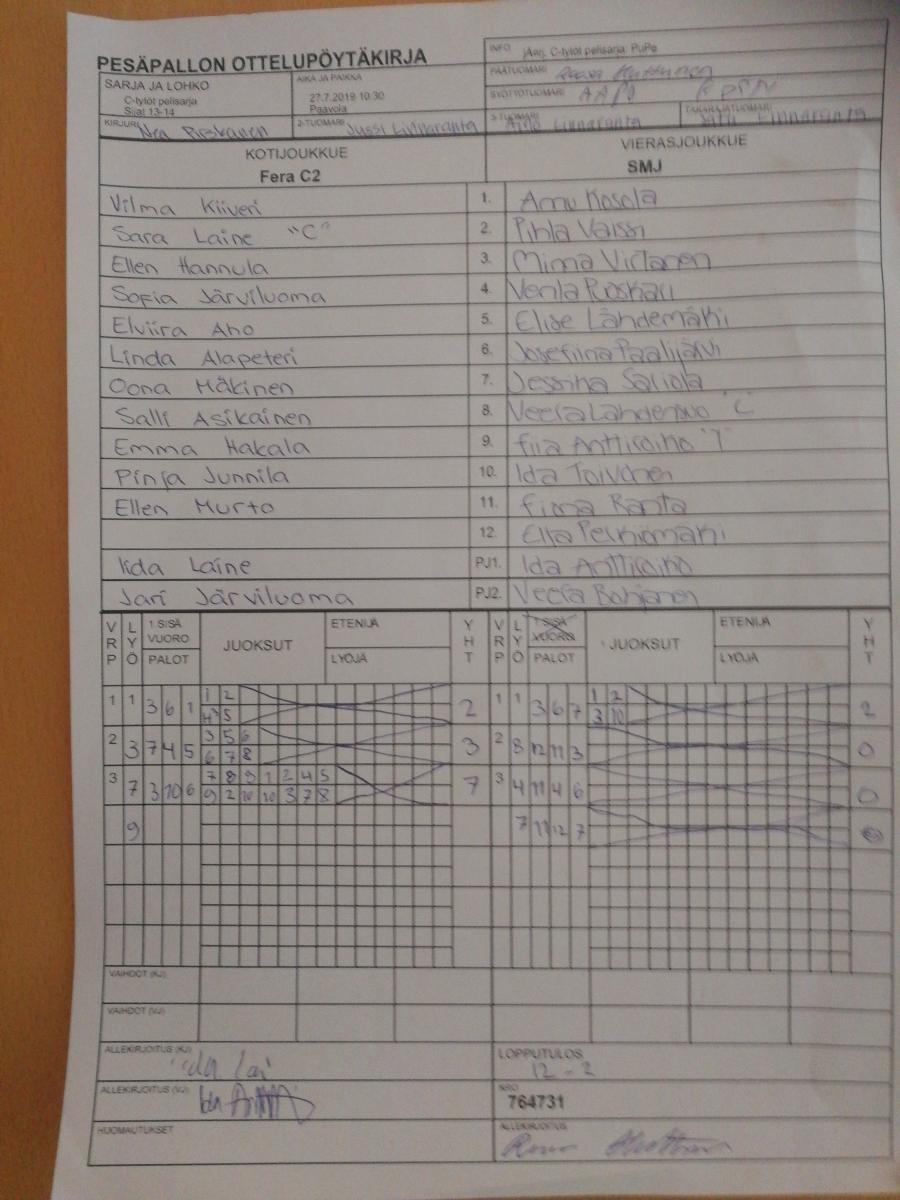 PESÄPALLON OTTELUPÖYTÄKIRJA
INFO jAarj. C-tytöt pelisarja: PuPe
PÄÄTUOMARI
SARJA JA LOHKO
C-tytöt pelisarja
Sijat 13-14
AIKA JA PAIKKA
27.7.2019 10:30
Paavola
SYÖTTÖTUOMARI
KIRJURI
2-TUOMARI Jussi Linnaranta
3-TUOMARI Aino Linnaranta
TAKARAJATUOMARI Linnaranta
KOTIJOUKKUE
Fera C2
VIERASJOUKKUE
SMJ
Vilma Kiiveri 1. Annu Kosola
Sara Laine "C" 2. Pihla Vaissi
Ellen Hannula 3. Minna Virtanen
Sofia Järviluoma 4. Venla Ruoskari
Elviira Aho 5. Elise Lähdemäki
Linda Alapeteri 6. Josefiina Paalijärvi
Oona Mäkinen 7. Jessina Sariola
Salli Asikainen 8. Veera "C"
Emma Hakala 9. Fiia Anttiroiko "T"
Pinja Junnila 10. Ida Toivonen
Ellen Murto 11. Ranta
12. Ella Pelkiömäki
Iida Laine PJ1. Ida Anttiroiko
Jari Järviluoma PJ2. Veera
VRP LYÖ 1 SISÄ VUORO PALOT JUOKSUT ETENIJÄ LYÖJÄ YHT VRP LYÖ 1 SISÄ VUORO PALOT JUOKSUT ETENIJÄ LYÖJÄ YHT
1 1 3 6 1 1 2 2 1 1 3 6 7 1 2 2
4 5 3 10
2 3 7 4 5 3 5 6 3 2 8 12 11 3 0
6 7 8
3 7 3 10 6 7 8 9 1 2 4 5 7 3 4 11 4 6 0
9 2 10 10 3 7 8
9 7 11 12 7
VAIHDOT (KJ)
VAIHDOT (VJ)
ALLEKIRJOITUS (KJ)
LOPPUTULOS
12 - 2
ALLEKIRJOITUS (VJ)
NRO
764731
HUOMAUTUKSET
ALLEKIRJOITUS